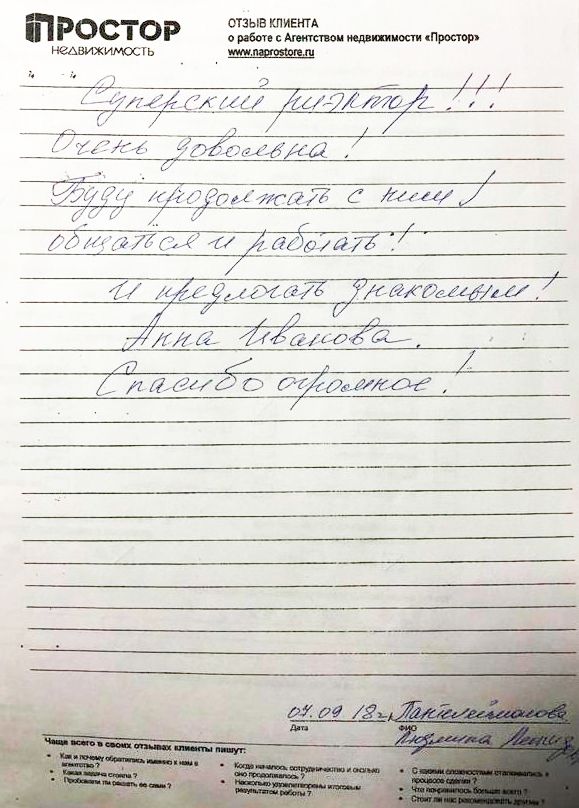 ПРОСТОР
НЕДВИЖИМОСТЬ
ОТЗЫВ КЛИЕНТА
о работе с Агентством недвижимости «Простор»
www.naprostore.ru
Суперский риэктор!!!
Очень довольна!
Буду продолжать с ним
общаться и работать!
И предлогать знакомым!
Анна Иванова.
Спасибо огромное!
07.09 18г. Пантелеймонова
Дата ФИО
Людмила
Чаще всего в своих отзывах клиенты пишут:
• Как и почему обратились именно к нам в агентство?
• Какая задача стояла?
• Пробовали ли решать ее сами?
• Когда началось сотрудничество и сколько оно продолжалось?
• Насколько удовлетворены итоговым результатом работы?
• С какими сложностями сталкивались в процессе сделки?
• Что понравилось больше всего?
• Стоит ли нас рекомендовать другим?